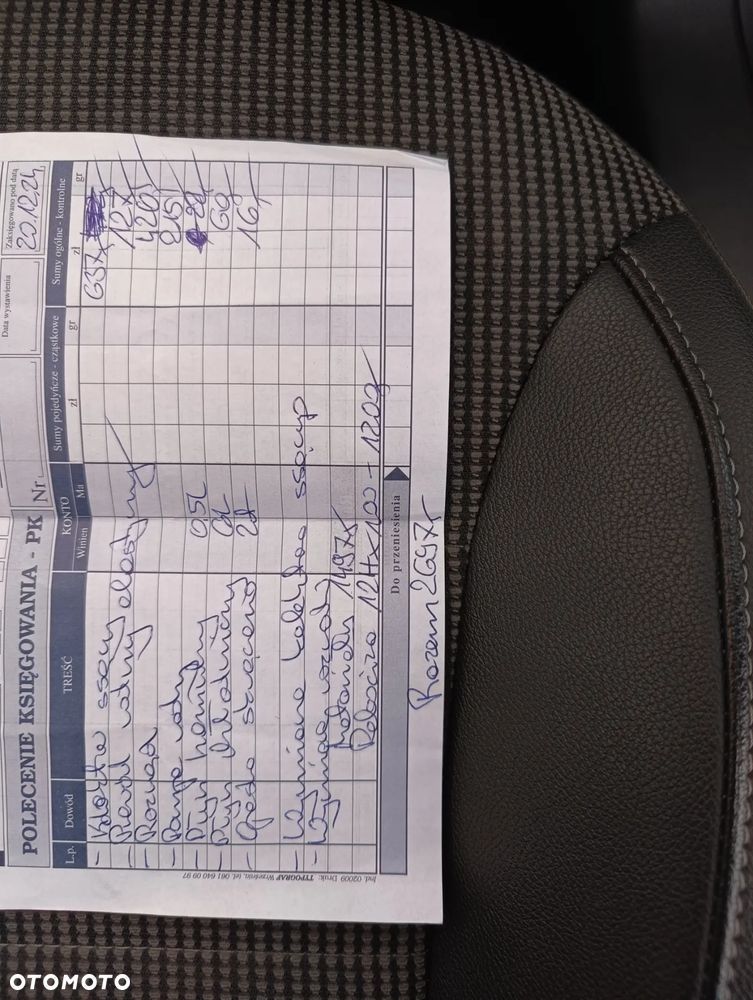 Data wystawienia
Zaksięgowano pod datą
20.12.24
POLECENIE KSIĘGOWANIA - PK Nr
L.p. Dowód TREŚĆ KONTO Sumy pojedyńcze - cząstkowe Sumy ogólne - kontrolne
Winien Ma zł gr zł gr
- Kolektor ssący 637,-
- Płyn hamulcowy 0,5L
- Rozrząd 420,-
- Pompa wody 215,-
- Płyn chłodniczy 60,-
2L 16,-
- Wymiana kolektora ssącego
- Wymiana rozrządu
Materiały 1497,-
Robocizna 12H x 100 - 1200,-
Do przeniesienia
Razem 2697,-
Ind. 02009 Druk: TYPOGRAF Września, tel. 061 640 09 97
OTOMOTO